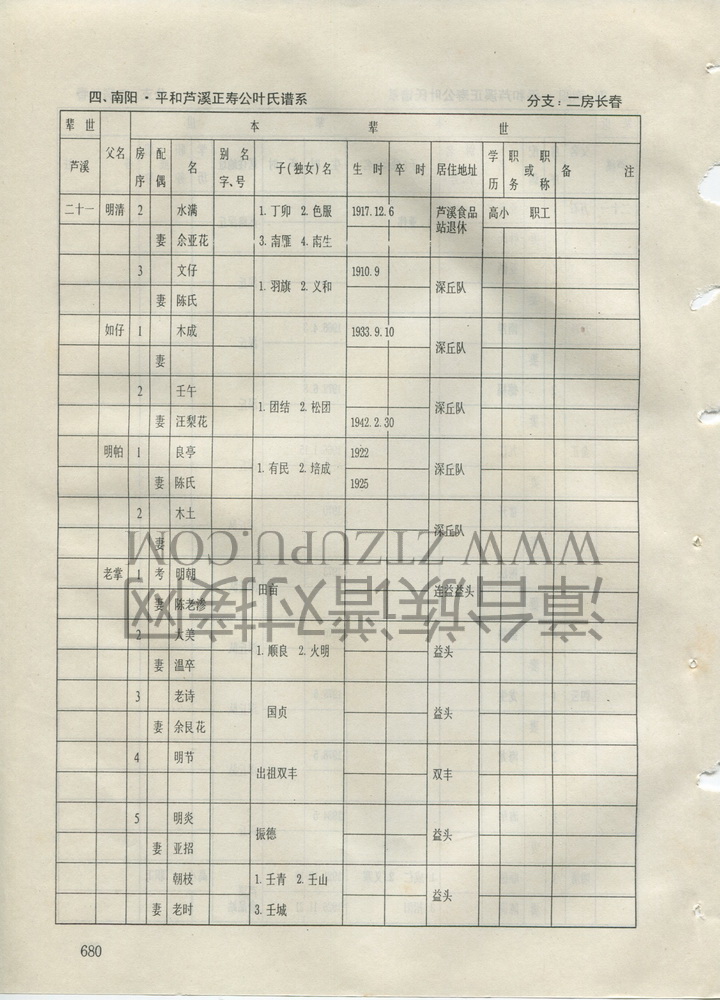 四、南阳·平和芦溪正寿公叶氏谱系 分支：二房长春
辈世 本 辈 世
芦溪 父名 房序 配偶 名 别名字、号 子(独女)名 生时 卒时 居住地址 学历 职务或职称 备注
二十一 明清 2 水满 1.丁卯 2.色服 1917.12.6 芦溪食品站退休 高小 职工
妻 余亚花 3.南雁 4.南生
3 文仔 1.羽旗 2.义和 1910.9 深丘队
妻 陈氏
如仔 1 木成 1933.9.10 深丘队
妻
2 壬午 1.团结 2.松团 深丘队
妻 汪梨花 1942.2.30
明帕 1 良亭 1.有民 2.培成 1922 深丘队
妻 陈氏 1925
2 木土 深丘队
妻
老掌 1 考 明朝 田亩 连益益头
妻 陈老渗
2 大美 1.顺良 2.火明 益头
妻 温卒
3 老诗 国贞 益头
妻 余艮花
4 明节 出祖双丰 双丰
5 明炎 振德 益头
妻 亚招
朝枝 1.壬青 2.壬山 益头
妻 老时 3.壬城
680
漳台族谱对接网
WWW.ZTZUPU.COM